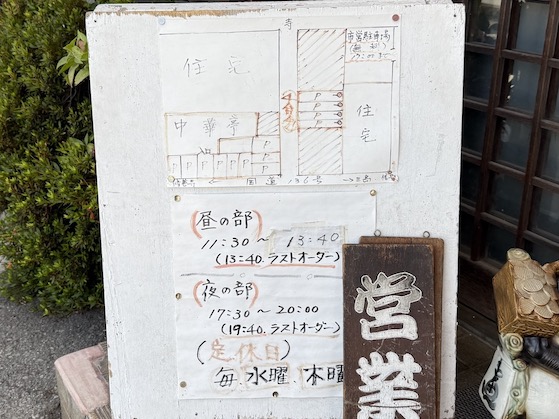 寺
住宅
市営駐車場
(無料)
住宅
中華亭
入口
P P P P P P P P
P P P P
← 国道136号 →三島
昼の部
11:30〜13:40
(13:40.ラストオーダー)
夜の部
17:30〜20:00
(19:40.ラストオーダー)
(定休日)
毎.水曜.木曜
営業